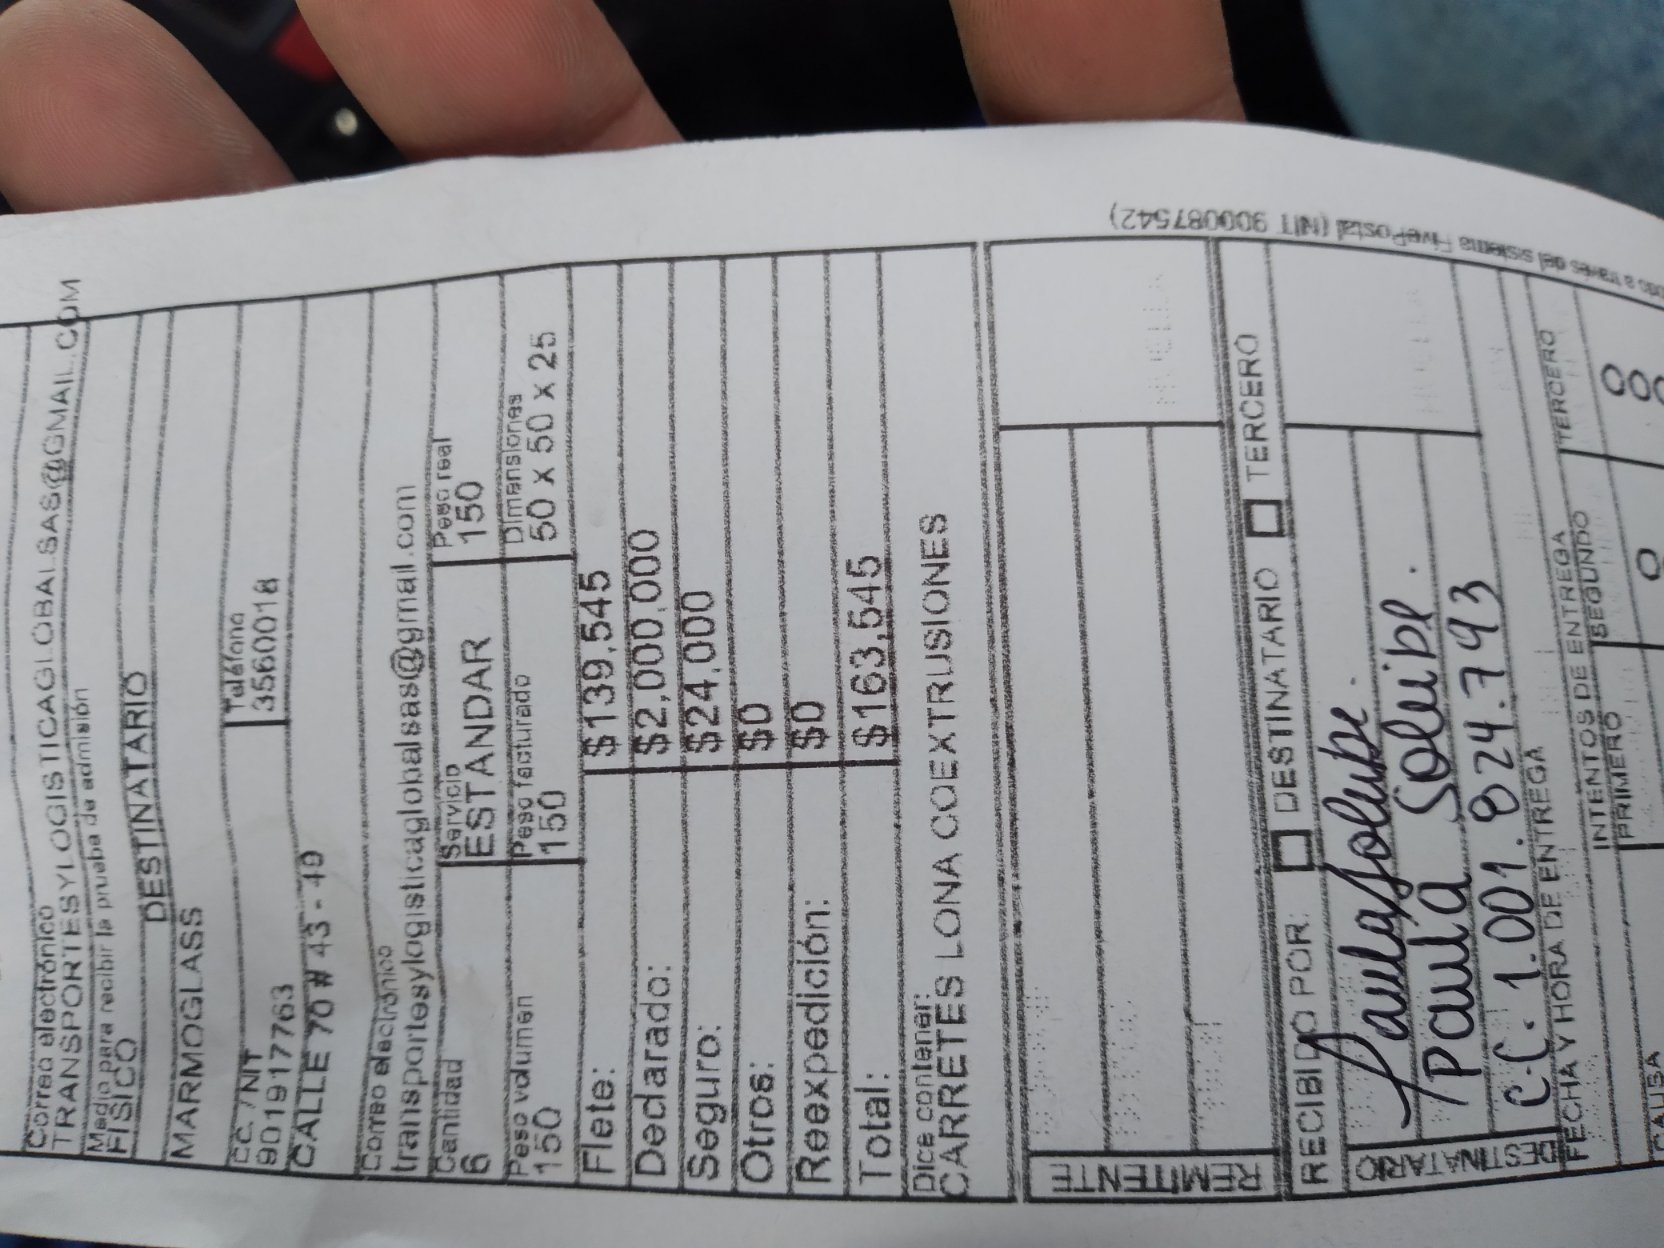 Correo electrónico
TRANSPORTESYLOGISTICAGLOBALSAS@GMAIL.COM
Medio para recibir la prueba de admisión
FISICO
DESTINATARIO
MARMOGLASS
C.C. /NIT Teléfono
901917763 3560018
CALLE 70 # 43 - 49
Correo electrónico
transportesylogisticaglobalsas@gmail.com
Cantidad Servicio Peso real
6 ESTANDAR 150
Peso volumen Peso facturado Dimensiones
150 150 50 x 50 x 25
Flete: $139,545
Declarado: $2,000,000
Seguro: $24,000
Otros: $0
Reexpedición: $0
Total: $163,545
Dice contener:
CARRETES LONA COEXTRUSIONES
REMITENTE
RECIBIDO POR: DESTINATARIO TERCERO
DESTINATARIO
Paula
Paula
C.C. 1.001.824.793
FECHA Y HORA DE ENTREGA
INTENTOS DE ENTREGA
PRIMERO SEGUNDO TERCERO
CAUSA
a través del sistema FivePostal (NIT 900087542)